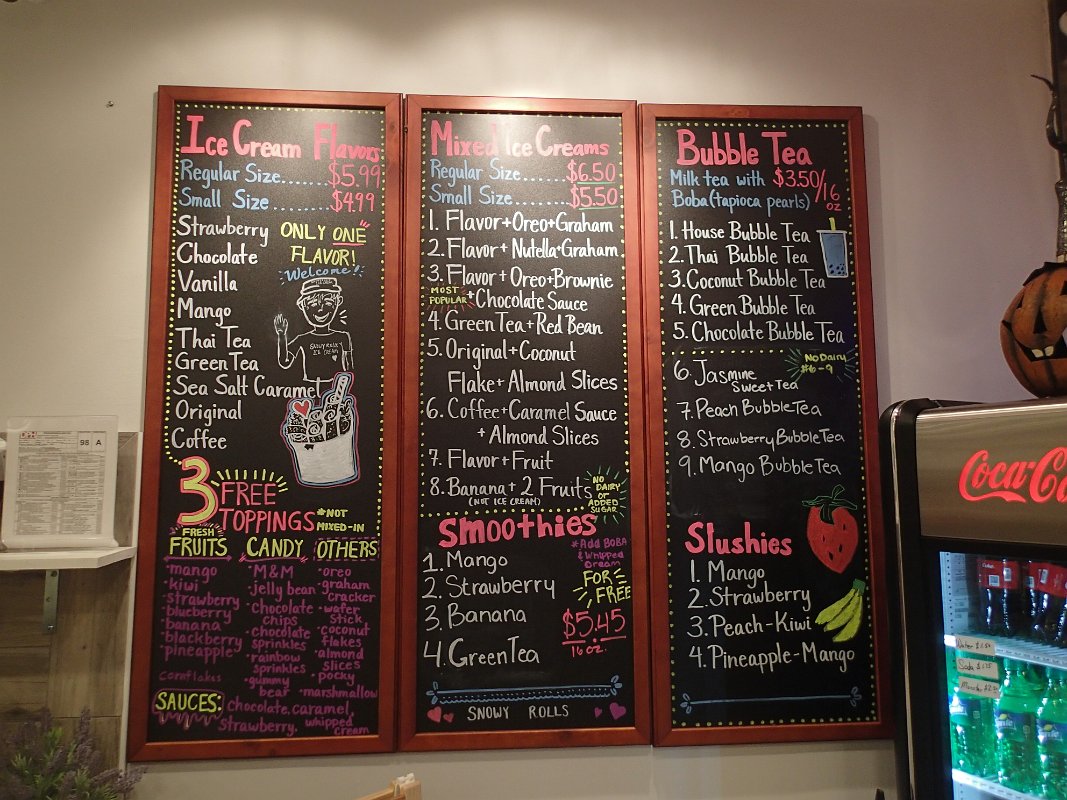 Ice Cream Flavors
Regular Size.......$5.99
Small Size.......$4.99
Strawberry
Chocolate
Vanilla
Mango
Thai Tea
Green Tea
Sea Salt Caramel
Original
Coffee
ONLY ONE
FLAVOR!
Welcome!
3 FREE
TOPPINGS
*NOT
MIXED-IN
FRESH
FRUITS
•mango
•kiwi
•strawberry
•blueberry
•banana
•blackberry
•pineapple
cornflakes
CANDY
•M&M
•jelly bean
•chocolate
chips
•chocolate
sprinkles
•rainbow
sprinkles
•gummy
bear
OTHERS
•oreo
•graham
cracker
•wafer
stick
•coconut
flakes
•almond
slices
•pocky
•marshmallow
SAUCES: chocolate, caramel,
strawberry, whipped
cream
Mixed Ice Creams
Regular Size......$6.50
Small Size......$5.50
1. Flavor+Oreo+Graham
2. Flavor+Nutella+Graham
3. Flavor+Oreo+Brownie
+Chocolate Sauce
MOST
POPULAR
4. Green Tea+Red Bean
5. Original+Coconut
Flake+Almond Slices
6. Coffee+Caramel Sauce
+Almond Slices
7. Flavor+Fruit
8. Banana+2 Fruits
(NOT ICE CREAM)
NO
DAIRY
OR
ADDED
SUGAR
Smoothies
1. Mango
2. Strawberry
3. Banana
4. Green Tea
*Add BOBA
& Whipped
Cream
FOR
FREE
$5.45
16 oz.
SNOWY ROLLS
Bubble Tea
Milk tea with $3.50/16
Boba(tapioca pearls) oz
1. House Bubble Tea
2. Thai Bubble Tea
3. Coconut Bubble Tea
4. Green Bubble Tea
5. Chocolate Bubble Tea
No Dairy
#6-9
6. Jasmine
Sweet Tea
7. Peach Bubble Tea
8. Strawberry Bubble Tea
9. Mango Bubble Tea
Slushies
1. Mango
2. Strawberry
3. Peach-Kiwi
4. Pineapple-Mango
98 A
Coca-Co
Soda
Sprite